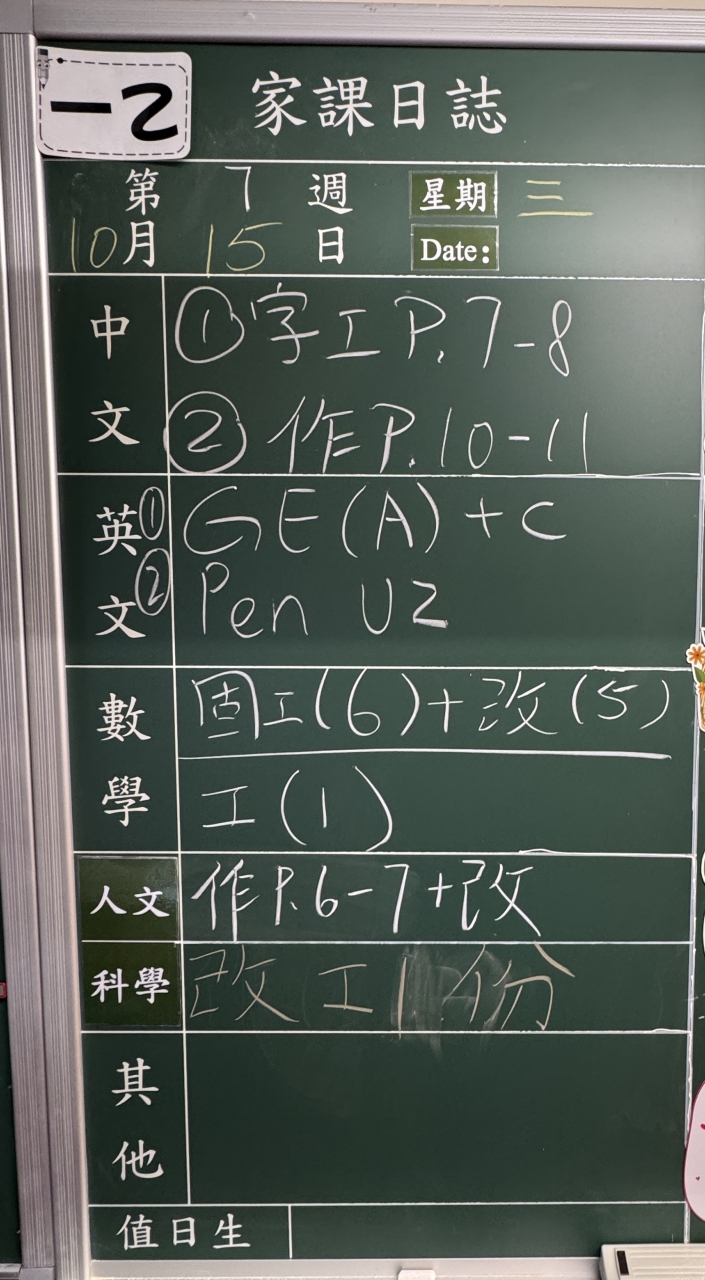 一2
家課日誌
第 7 週 星期 三
10月 15 日 Date:
中文 ①字工P.7-8
②作P.10-11
英文 ①GE(A)+C
②Pen U2
數學 固工(6)+改(5)
工(1)
人文 作P.6-7+改
科學 改工1份
其他
值日生